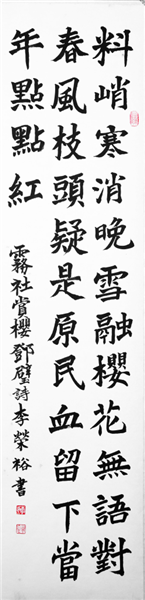 料峭寒消晚雪融櫻花無語對
春風枝頭疑是原民血留下當
年點點紅
霧社賞櫻鄧璧詩李榮裕書